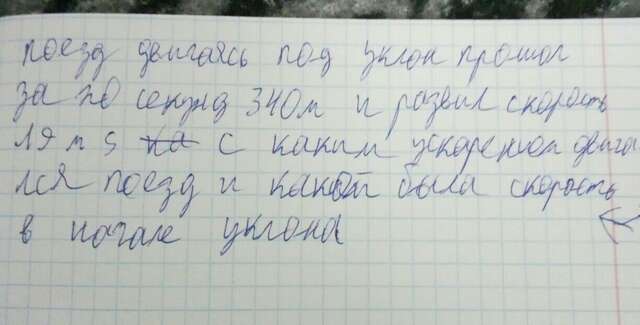 поезд двигаясь под уклон прошол
за 20 секунд 340 м и развил скорость
19 м s на с каким ускорением двига
лся поезд и какой была скорость
в начале уклона